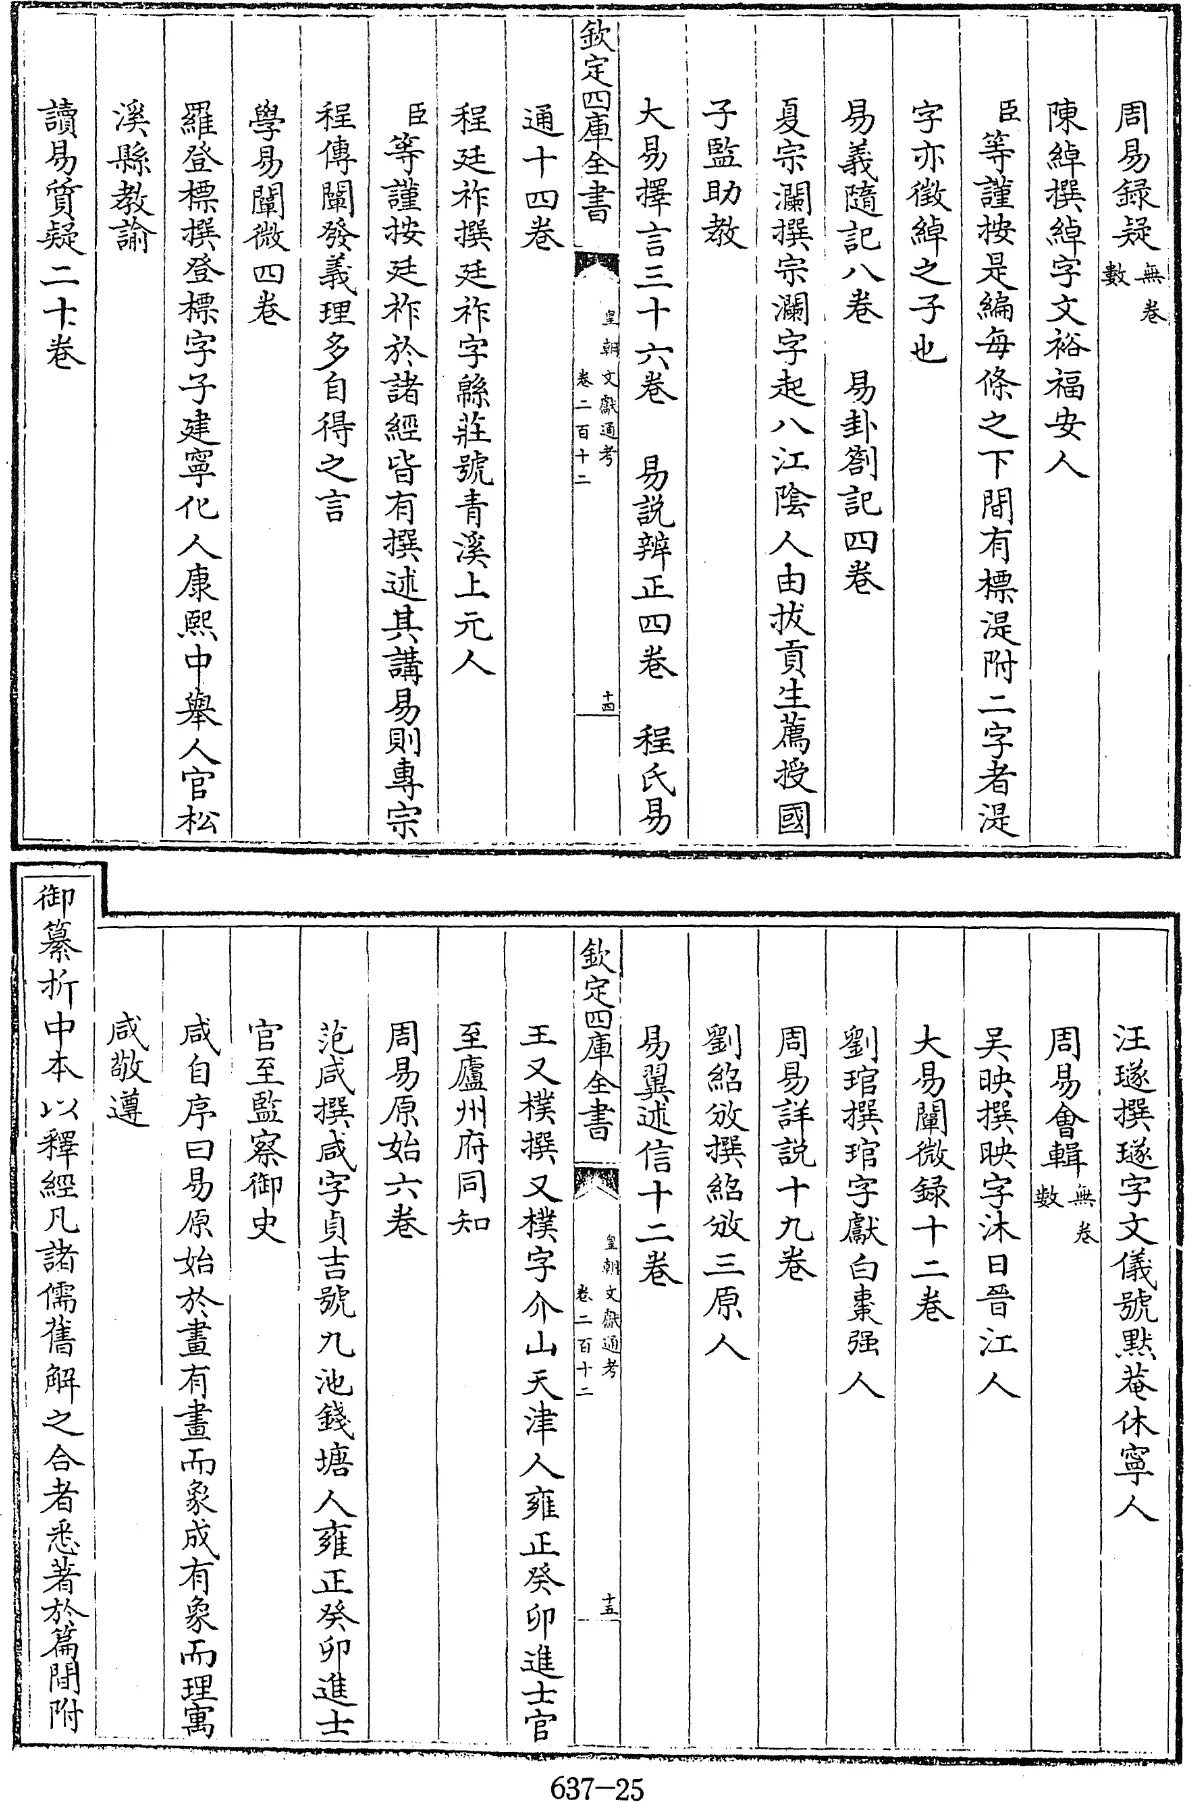 周易録疑無卷數
陳綽撰綽字文裕福安人
臣等謹按是編每條之下間有標湜附二字者湜
字亦徵綽之子也
易義隨記八卷　易卦劄記四卷
夏宗瀾撰宗瀾字起八江陰人由拔貢生薦授國
子監助教
大易擇言三十六卷　易説辨正四卷　程氏易
欽定四庫全書
皇朝文獻通考
卷二百十二
十四
通十四卷
程廷祚撰廷祚字緜莊號青溪上元人
臣等謹按廷祚於諸經皆有撰述其講易則專宗
程傳闡發義理多自得之言
學易闡微四卷
羅登標撰登標字子建寧化人康熙中舉人官松
溪縣教諭
讀易質疑二十卷
汪璲撰璲字文儀號黙菴休寧人
周易會輯無卷數
吴映撰映字沐日晉江人
大易闡微録十二卷
劉琯撰琯字獻白棗强人
周易詳説十九卷
劉紹攽撰紹攽三原人
易翼述信十二卷
欽定四庫全書
皇朝文獻通考
卷二百十二
十五
王又樸撰又樸字介山天津人雍正癸卯進士官
至廬州府同知
周易原始六卷
范咸撰咸字貞吉號九池錢塘人雍正癸卯進士
官至監察御史
咸自序曰易原始於畫有畫而象成有象而理寓
咸敬遵
御纂折中本以釋經凡諸儒舊解之合者悉著於篇間附
637-25